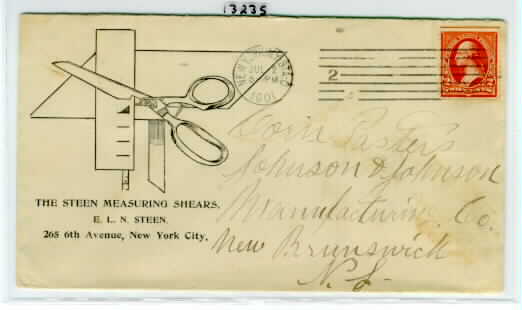 13235
NEW YORK, N.Y. STA. O
JUL
PM
1901
2
THE STEEN MEASURING SHEARS,
E. L. N. STEEN.
265 6th Avenue, New York City.
Corn Pasters
Johnson & Johnson
Manufacturing Co.
New Brunswick
N. J.